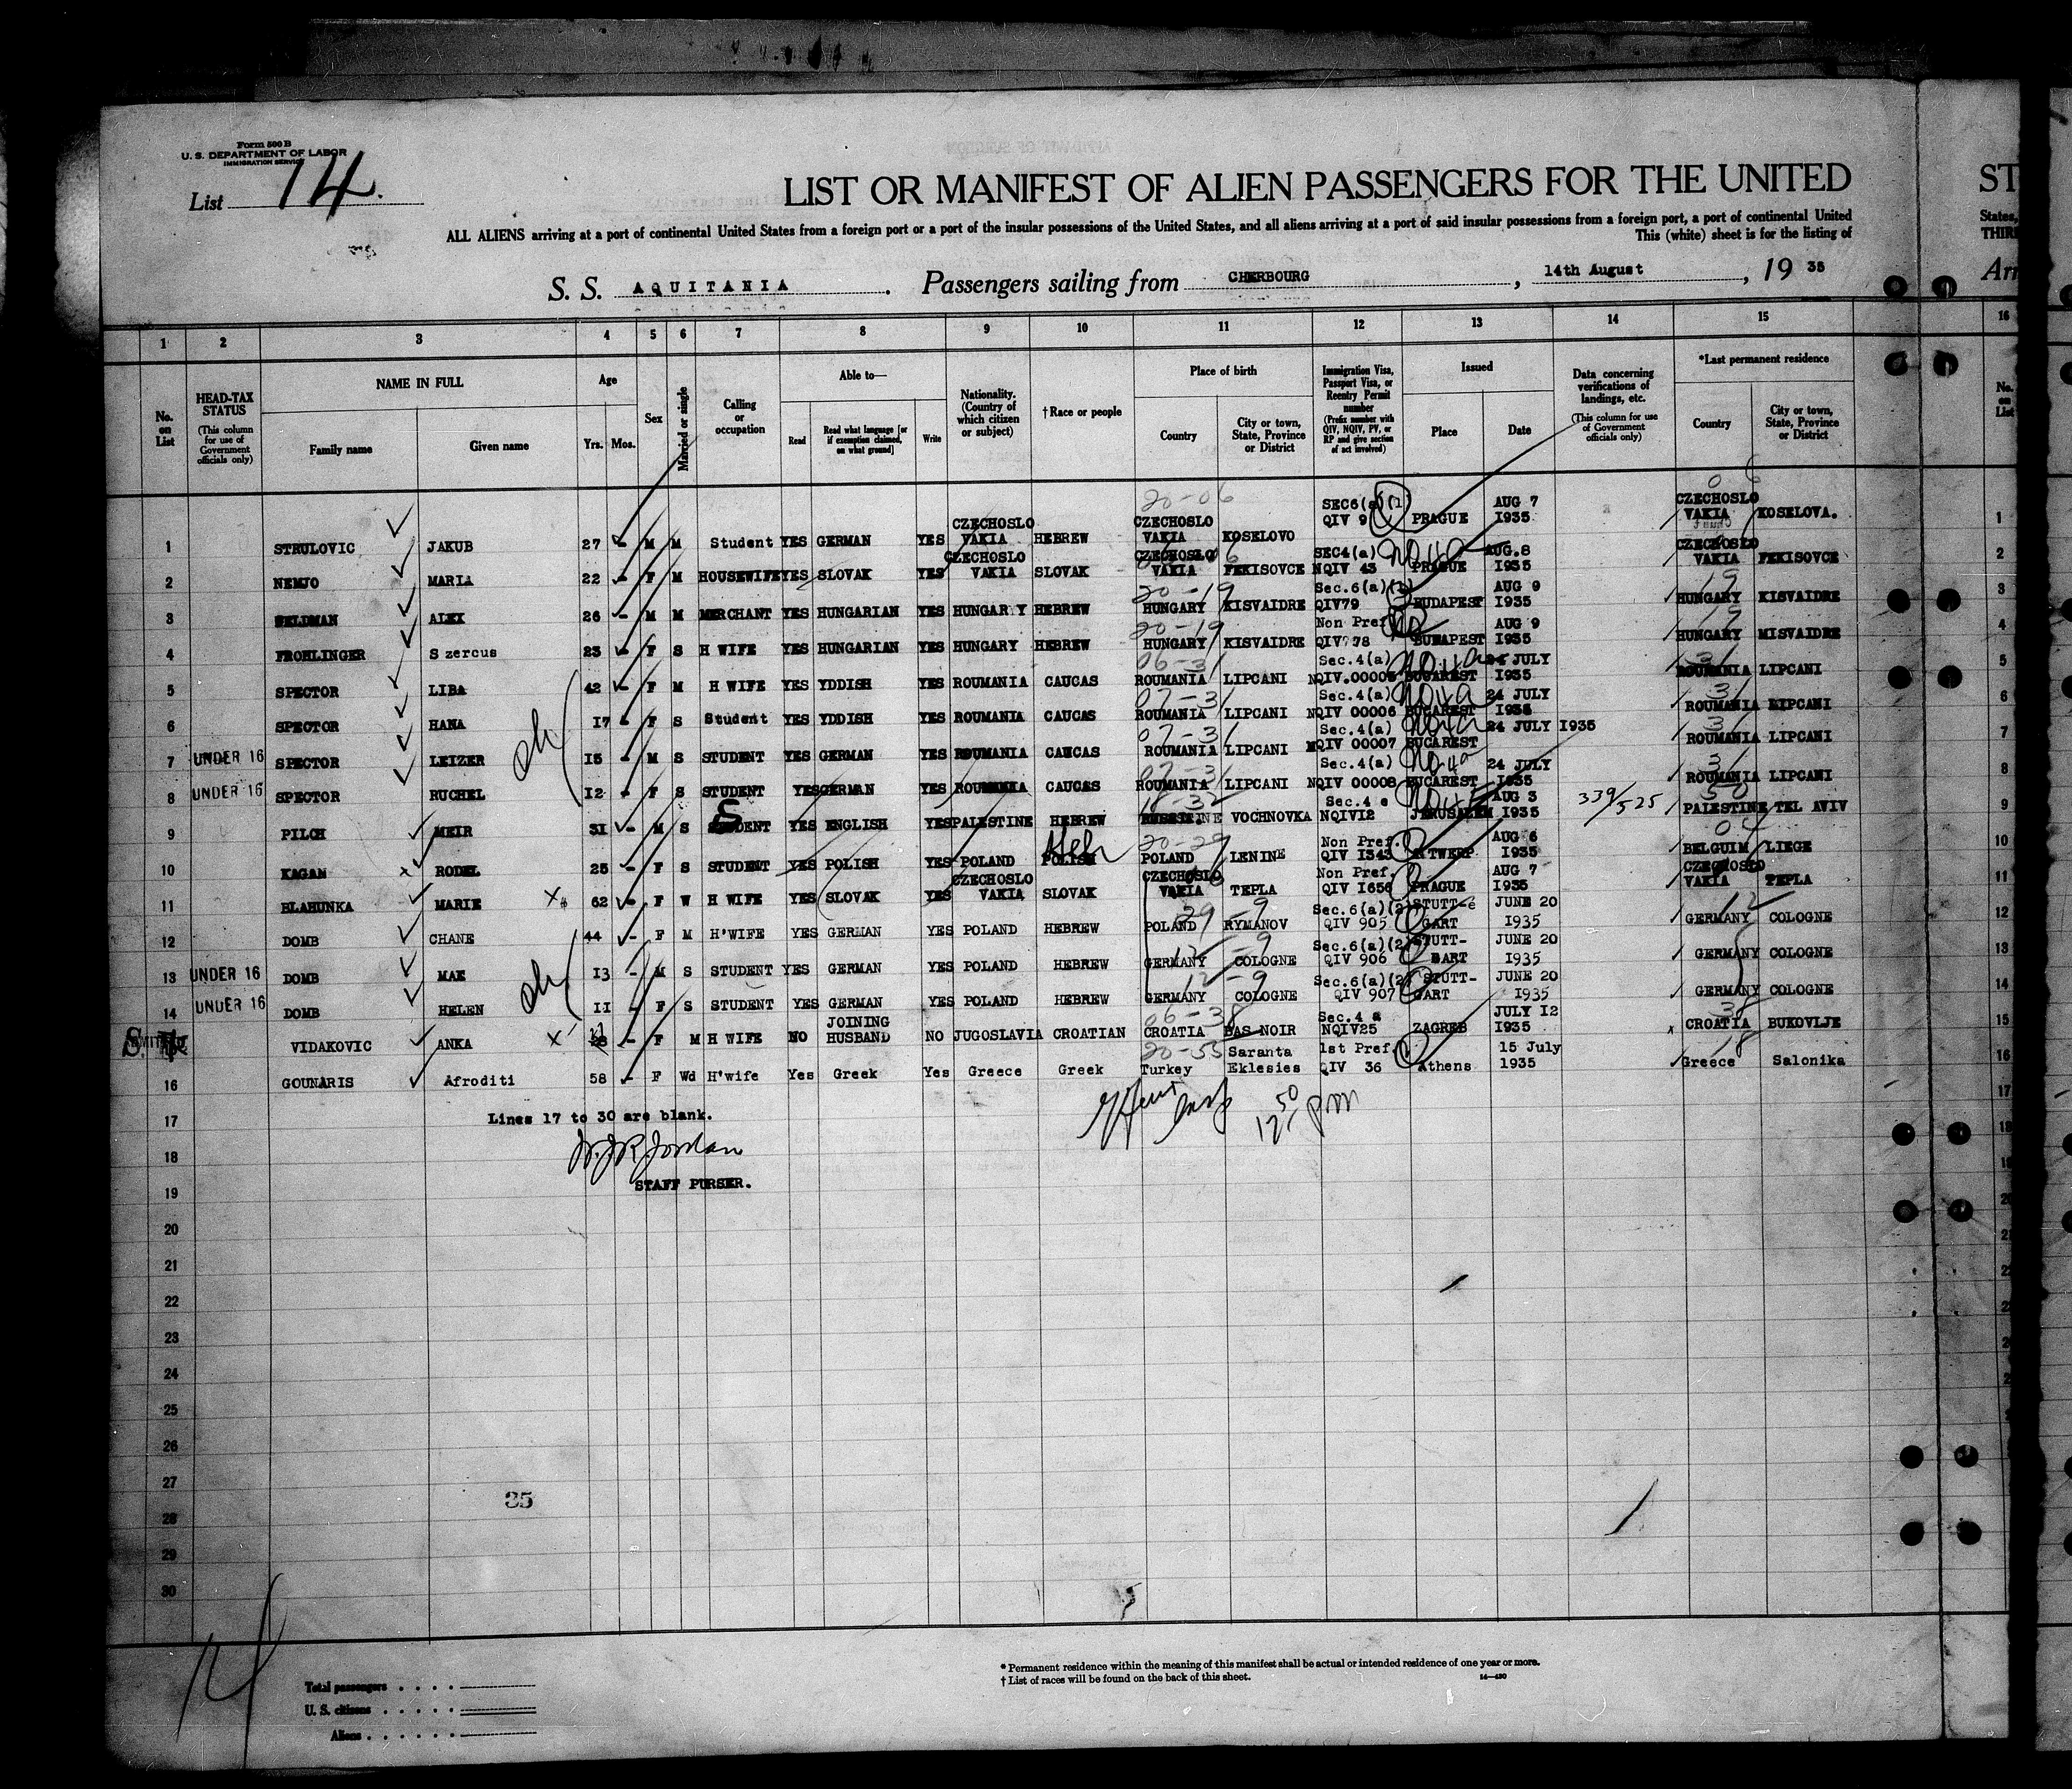 Form 500 B
U. S. DEPARTMENT OF LABOR
IMMIGRATION SERVICE
List 14.
LIST OR MANIFEST OF ALIEN PASSENGERS FOR THE UNITED
ALL ALIENS arriving at a port of continental United States from a foreign port or a port of the insular possessions of the United States, and all aliens arriving at a port of said insular possessions from a foreign port, a port of continental United
This (white) sheet is for the listing of
S. S. AQUITANIA. Passengers sailing from CHERBOURG, 14th August, 19 35
ST
States,
THIR
Arr
1 2 3 4 5 6 7 8 9 10 11 12 13 14 15 16
No. on List
HEAD-TAX STATUS (This column for use of Government officials only)
NAME IN FULL
Family name Given name
Age
Yrs. Mos.
Sex
Married or single
Calling or occupation
Able to—
Read Read what language [or if exemption claimed, on what ground] Write
Nationality. (Country of which citizen or subject)
† Race or people
Place of birth
Country City or town, State, Province or District
Immigration Visa, Passport Visa, or Reentry Permit number (Prefix number with QIV, NQIV, PV, or RP and give section of act involved)
Issued
Place Date
Data concerning verifications of landings, etc. (This column for use of Government officials only)
*Last permanent residence
Country City or town, State, Province or District
No. on List
1 STRULOVIC JAKUB 27 - M M Student YES GERMAN YES CZECHOSLO VAKIA HEBREW 20-06 CZECHOSLO VAKIA KOSELOVO SEC6(a)(1) QIV 9 PRAGUE AUG 7 1935 CZECHOSLO VAKIA KOSELOVA. 1
2 NEMJO MARIA 22 - F M HOUSEWIFE YES SLOVAK YES CZECHOSLO VAKIA SLOVAK CZECHOSLO VAKIA FEKISOVCE SEC4(a) NQIV 43 No 4a PRAGUE AUG.8 1935 CZECHOSLO VAKIA FEKISOVCE 2
3 FELDMAN ALEX 26 - M M MERCHANT YES HUNGARIAN YES HUNGARY HEBREW 20-19 HUNGARY KISVAIDRE Sec.6(a) QIV79 BUDAPEST AUG 9 1935 19 HUNGARY KISVAIDRE 3
4 FROHLINGER Szercus 23 - F S H WIFE YES HUNGARIAN YES HUNGARY HEBREW 20-19 HUNGARY KISVAIDRE Non Pref QIV 78 BUDAPEST AUG 9 1935 19 HUNGARY MISVAIDRE 4
5 SPECTOR LIBA 42 - F M H WIFE YES YDDISH YES ROUMANIA CAUCAS 06-31 ROUMANIA LIPCANI Sec.4(a) NQIV.00005 No 4a BUCAREST JULY 1935 31 ROUMANIA LIPCANI 5
6 SPECTOR HANA 17 - F S Student YES YDDISH YES ROUMANIA CAUCAS 07-31 ROUMANIA LIPCANI Sec.4(a) NQIV 00006 No 4a BUCAREST 24 JULY 1935 31 ROUMANIA LIPCANI 6
7 UNDER 16 SPECTOR LEIZER 15 - M S STUDENT YES GERMAN YES ROUMANIA CAUCAS 07-31 ROUMANIA LIPCANI Sec.4(a) NQIV 00007 No 4a BUCAREST 24 JULY 1935 31 ROUMANIA LIPCANI 7
8 UNDER 16 SPECTOR RUCHEL 12 - F S STUDENT YES GERMAN YES ROUMANIA CAUCAS 07-31 ROUMANIA LIPCANI Sec.4(a) NQIV 00008 No 4a BUCAREST 24 JULY 1935 31 ROUMANIA LIPCANI 8
9 PILCH MEIR 31 - M S STUDENT YES ENGLISH YES PALESTINE HEBREW 18-32 VOCHNOVKA Sec.4 e NQIV12 No 4E JERUSALEM AUG 3 1935 339/525 50 PALESTINE TEL AVIV 9
10 KAGAN RODEL 25 - F S STUDENT YES POLISH YES POLAND POLISH Heb 20-29 POLAND LENINE Non Pref. QIV 1343 AUG 6 1935 04 BELGUIM LIEGE 10
11 BLAHUNKA MARIE 62 - F W H WIFE YES SLOVAK YES CZECHOSLO VAKIA SLOVAK CZECHOSLO VAKIA TEPLA Non Pref. QIV 1656 PRAGUE AUG 7 1935 CZECHOSLO VAKIA TEPLA 11
12 DOMB CHANE 44 - F M H'WIFE YES GERMAN YES POLAND HEBREW 29-9 POLAND RYMANOV Sec.6(a)(2) QIV 905 STUTT-GART JUNE 20 1935 12 GERMANY COLOGNE 12
13 UNDER 16 DOMB MAX 13 - M S STUDENT YES GERMAN YES POLAND HEBREW 12-9 GERMANY COLOGNE Sec.6(a)(2) QIV 906 STUTT-GART JUNE 20 1935 GERMANY COLOGNE 13
14 UNDER 16 DOMB HELEN 11 - F S STUDENT YES GERMAN YES POLAND HEBREW 12-9 GERMANY COLOGNE Sec.6(a)(2) QIV 907 STUTT-GART JUNE 20 1935 GERMANY COLOGNE 14
VIDAKOVIC ANKA - F M H WIFE NO JOINING HUSBAND NO JUGOSLAVIA CROATIAN 06-38 CROATIA BAS NOIR Sec.4 a NQIV25 ZAGREB JULY 12 1935 38 CROATIA BUKOVLJE 15
16 GOUNARIS Afroditi 58 - F Wd H'wife Yes Greek Yes Greece Greek 20-53 Turkey Saranta Eklesies 1st Pref. QIV 36 Athens 15 July 1935 18 Greece Salonika 16
17 Lines 17 to 30 are blank. 17
12 50 pm
W.J.R. Jordan
18
STAFF PURSER.
19
20
21
22
23
24
25
26
27
35
28
29
30
14
Total passengers
U. S. citizens
Aliens
* Permanent residence within the meaning of this manifest shall be actual or intended residence of one year or more.
† List of races will be found on the back of this sheet.
14—430